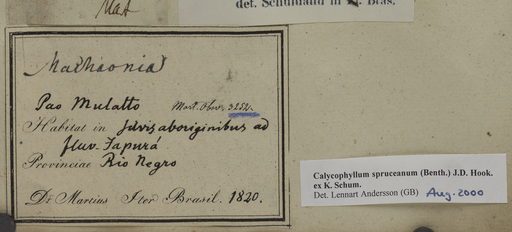 Mat
det. Schumann in Fl. Bras.
Mathaonia
Pao Mulatto Mart. Obser. 3252.
Habitat in sylvis aboriginibus ad
fluv. Japurá
Provinciae Rio Negro
Dr Martius Iter Brasil. 1820.
Calycophyllum spruceanum (Benth.) J.D. Hook.
ex K. Schum.
Det. Lennart Andersson (GB) Aug. 2000